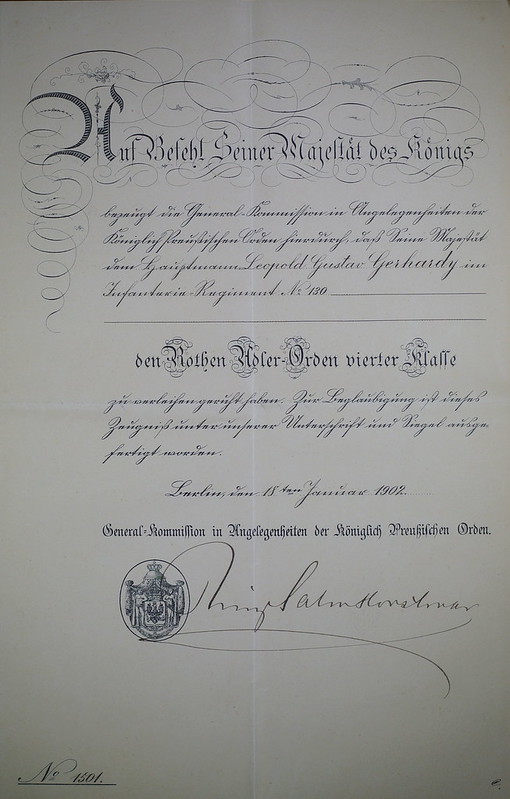 Auf Befehl Seiner Majestät des Königs
bezeugt die General-Kommission in Angelegenheiten der
Königlich Preußischen Orden hierdurch, daß Seine Majestät
dem Hauptmann Leopold Gustav Gerhardy im
Infanterie-Regiment No 130
den Rothen Adler-Orden vierter Klasse
zu verleihen geruht haben. Zur Beglaubigung ist dieses
Zeugniß unter unserer Unterschrift und Siegel ausge-
fertigt worden.
Berlin, den 18ten Januar 1902.
General-Kommission in Angelegenheiten der Königlich Preußischen Orden.
Prinz Salm Horstmar
No 1501.